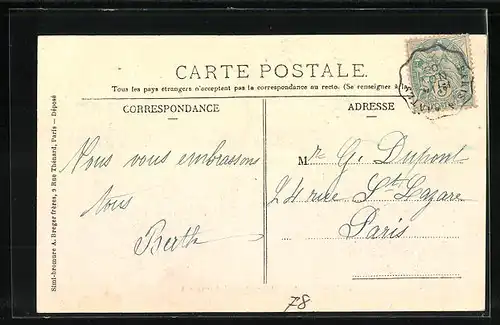 CARTE POSTALE.
Tous les pays étrangers n'acceptent pas la correspondance au recto. (Se renseigner à la
CORRESPONDANCE
ADRESSE
Vous vous embrassons
tous
Berthe
Mr G. Dupont
24 rue St Lazare
Paris
78
Simi-bromure A. Breger frères, 9 Rue Thénard, Paris — Déposé